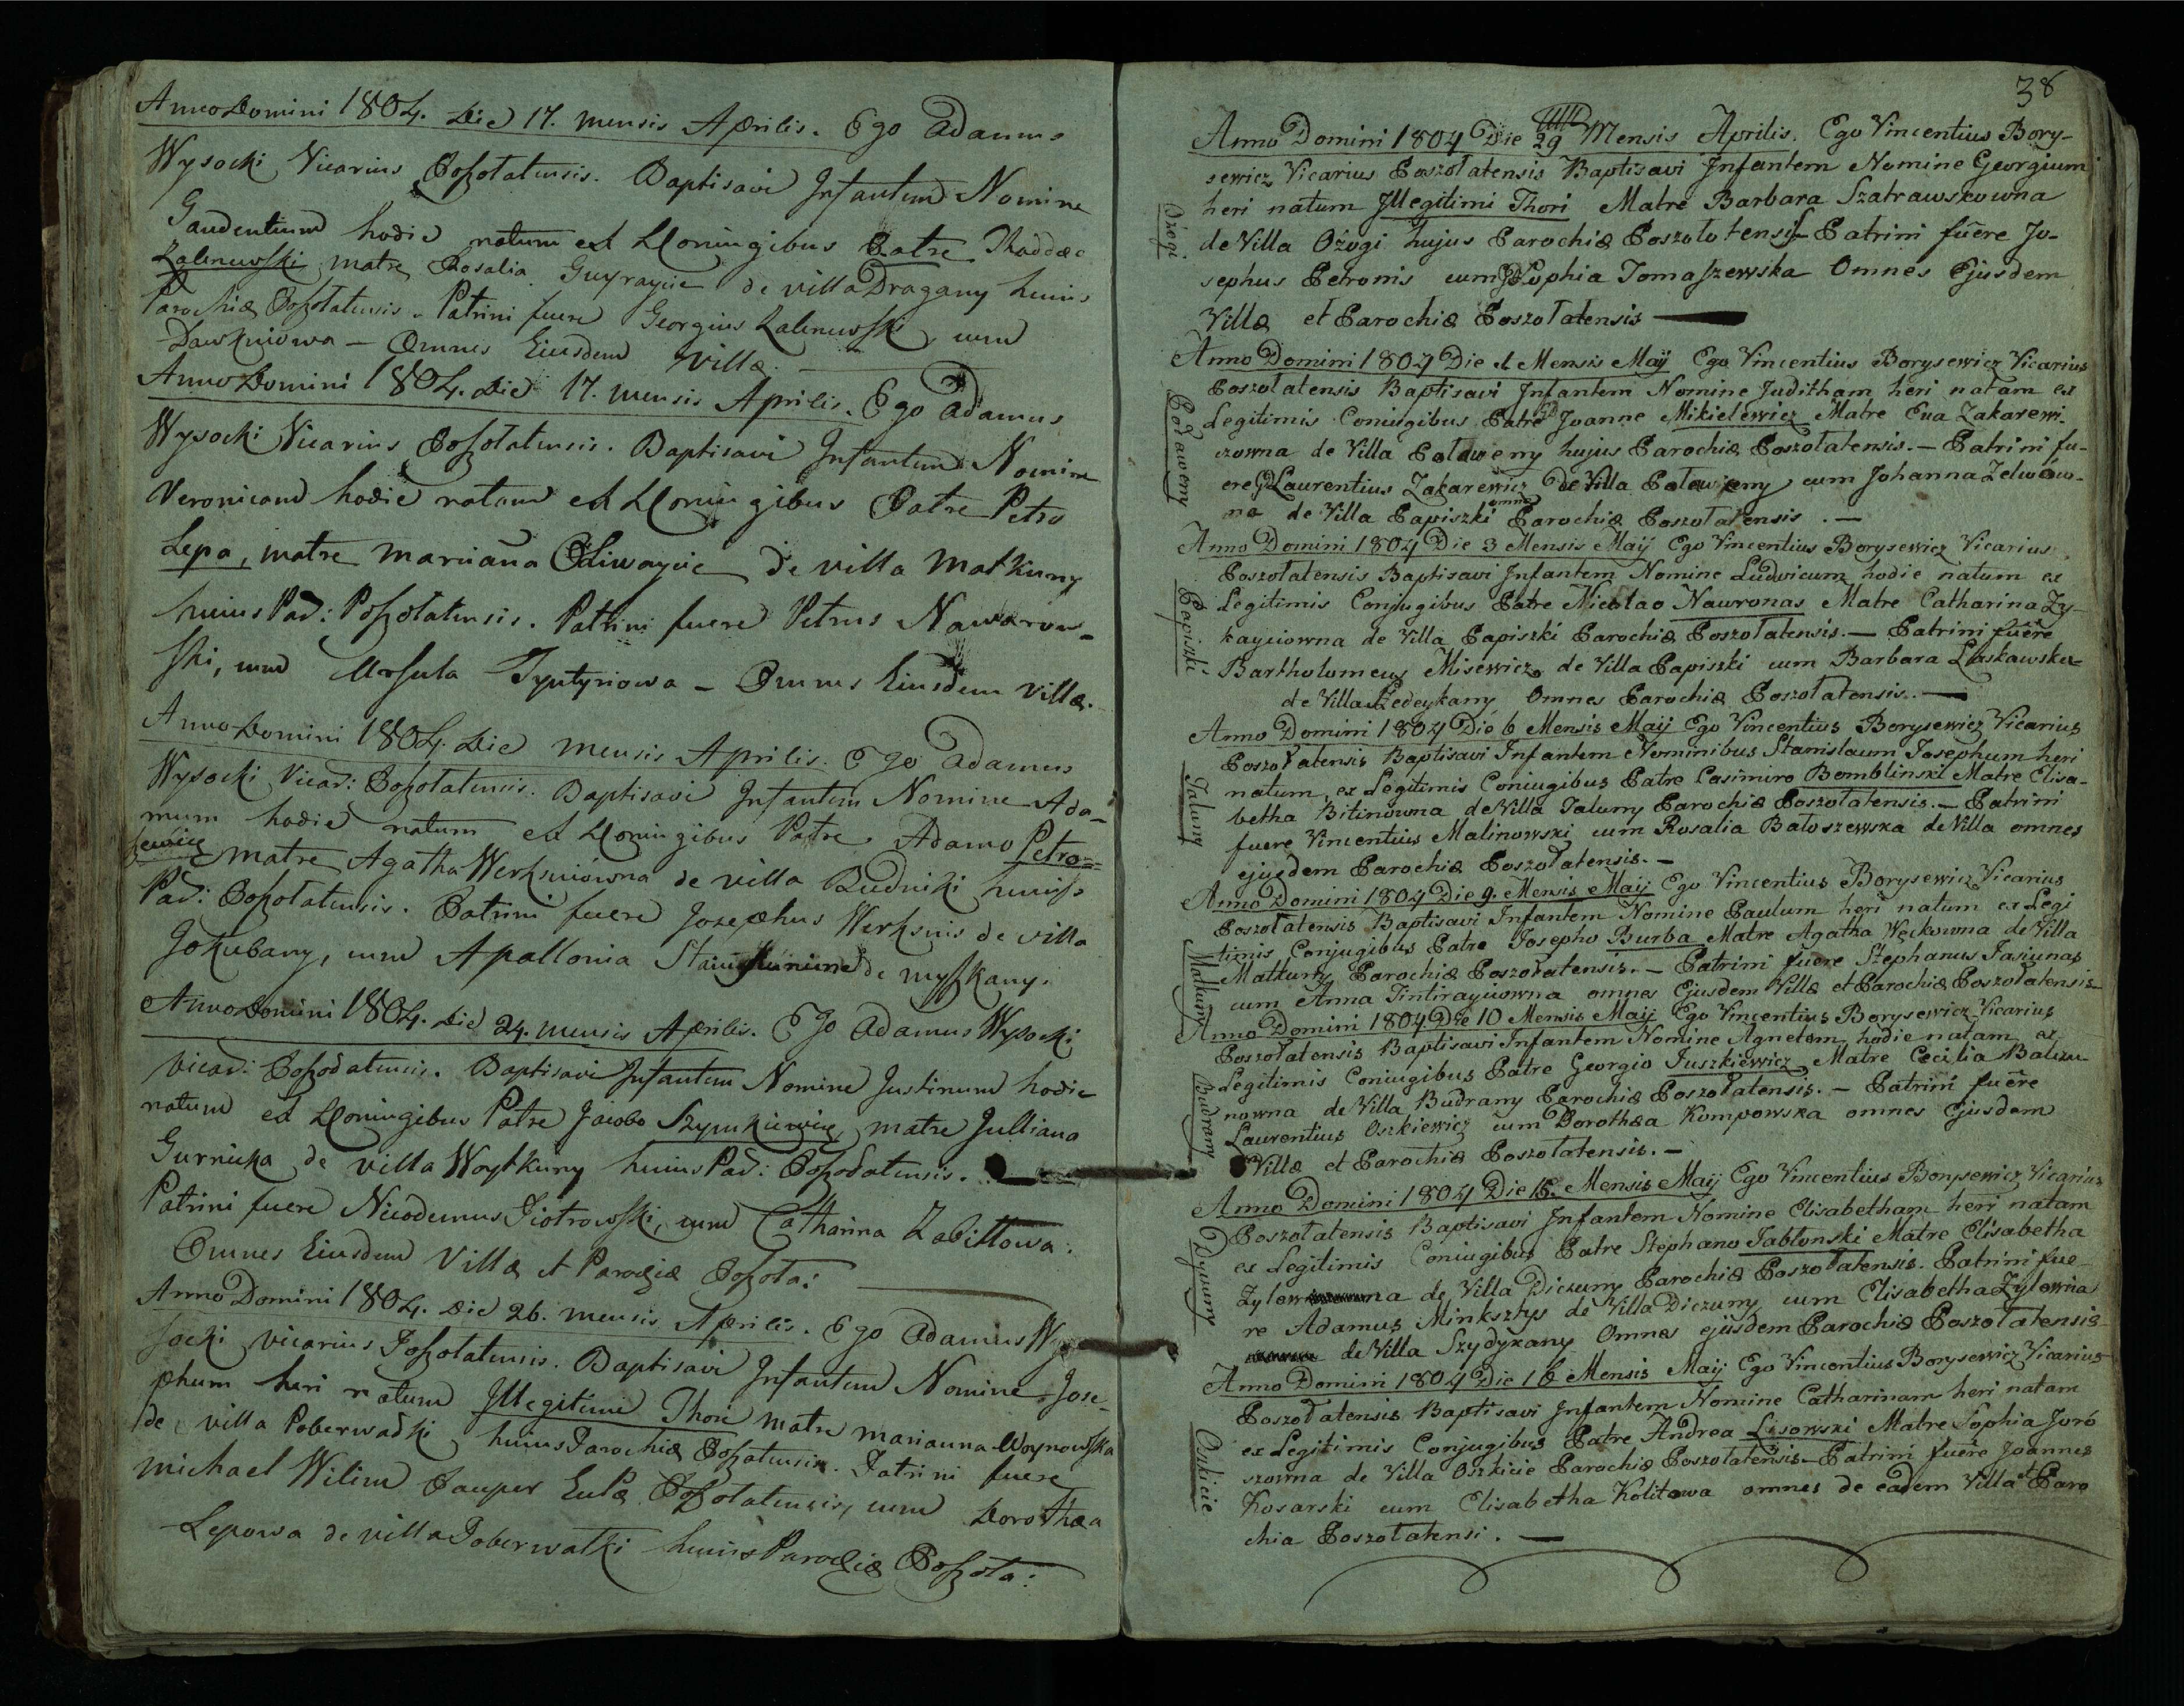 Anno Domini 1804. Die 17. mensis Aprilis. Ego Adamus
Wysocki Vicarius Poszołatensis. Baptisavi Infantem Nomine
Gaudentium hodie natum ex Coniugibus Patre Thaddæo
Zalenewski matre Rosalia de villa Dragany huius
Parochiæ Poszołatensis. Patrini fuere Georgius Zalenewski, cum
Dawkniowa – Omnes Eiusdem Villæ.
Anno Domini 1804. Die 17. mensis Aprilis. Ego Adamus
Wysocki Vicarius Poszołatensis. Baptisavi Infantem Nomine
Veronicam hodie natam ex Coniugibus Patre Petro
Lepa, matre Marianna de villa Matkuny
huius Par: Poszołatensis. Patrini fuere Petrus Nawarow-
ski, cum Ursula Tyntyniowa – Omnes Eiusdem Villæ.
Anno Domini 1804. Die mensis Aprilis. Ego Adamus
Wysocki Vicar: Poszołatensis. Baptisavi Infantem Nomine Ada-
mum hodie natum ex Coniugibus Patre Adamo Petro=
sewicz matre Agatha Werksniówna de villa Budniki huius
Par: Poszołatensis. Patrini fuere Josephus Werksnis de villa
Jokubany, cum Apallonia de Myszkany.
Anno Domini 1804. Die 24. mensis Aprilis. Ego Adamus Wysocki
Vicar: Poszołatensis. Baptisavi Infantem Nomine Justinum hodie
natum ex Coniugibus Patre Jacobo Szymkiewicz, matre Julliana
Gurnicka de villa Woytkuny huius Par: Poszołatensis. –
Patrini fuere Nicodemus Piotrowski, cum Catharina Zabittowa.
Omnes Eiusdem Villæ et Parochiæ Poszoła:
Anno Domini 1804. Die 26. mensis Aprilis. Ego Adamus Wy
socki vicarius Poszołatensis. Baptisavi Infantem Nomine Jose-
phum heri natum Illegitimi Thori Matre Marianna Woynowska
de villa Poberwadki, huius Parochiæ Poszołatensis. Patrini fuere
Michael Wilim Pauper Poszołatensis, cum Dorothea
Lepowa de villa Poberwatki huius Parochiæ Poszoła:
38
Anno Domini 1804 Die 29 Mensis Aprilis. Ego Vincentius Bory-
sewicz Vicarius Poszołatensis Baptisavi Infantem Nomine Georgium
heri natum Illegitimi Thori Matre Barbara Szatrawskowna
de Villa Ożogi hujus Parochiæ Poszołotensis Patrini fuere Jo-
sephus Petronis cum Sophia Tomaszewska Omnes Ejusdem
Villæ et Parochiæ Poszołatensis
Ożogi
Anno Domini 1804 Die 1 Mensis Maij Ego Vincentius Borysewicz Vicarius
Poszołatensis Baptisavi Infantem Nomine Juditham heri natam ex
Legitimis Coniugibus Patre Joanne Mikielewicz Matre Eva Zakarewi-
czowna de Villa Poławeny hujus Parochiæ Poszołatensis. – Patrini fu-
ere Laurentius Zakarewicz de Villa Poławeny cum Johanna Zelwow-
na de Villa Papiszki omnes Parochiæ Poszołatensis. –
Poławeny
Anno Domini 1804 Die 3 Mensis Maij Ego Vincentius Borysewicz Vicarius
Poszołatensis Baptisavi Infantem Nomine Ludwicum hodie natum ex
Legitimis Conjugibus Patre Nicolao Nawronas Matre Catharina Zy-
kayciowna de Villa Papiszki Parochiæ Poszołatensis. – Patrini fuere
Bartholomeus Misewicz de Villa Papiszki cum Barbara Laskawska
de Villa Dedeykany Omnes Parochiæ Poszołatensis. –
Papiszki
Anno Domini 1804 Die 6 Mensis Maij Ego Vincentius Borysewicz Vicarius
Poszołatensis Baptisavi Infantem Nominibus Stanislaum Josephum heri
natum ex Legitimis Coniugibus Patre Casimiro Bomblinski Matre Elisa-
betha Bitinowna de Villa Taluny Parochiæ Poszołatensis. – Patrini
fuere Vincentius Malinowski cum Rosalia Batoszewska de Villa omnes
ejusdem Parochiæ Poszołatensis. –
Taluny
Anno Domini 1804 Die 9. Mensis Maij Ego Vincentius Borysewicz Vicarius
Poszołatensis Baptisavi Infantem Nomine Paulum heri natum ex Legi
timis Conjugibus Patre Josepho Burba Matre Agatha Węckowna de Villa
Matkuny Parochiæ Poszołatensis. – Patrini fuere Stephanus Jasiunas
cum Anna Tintirayciowna omnes Ejusdem Villæ et Parochiæ Poszołatensis
Matkuny
Anno Domini 1804 Die 10 Mensis Maij Ego Vincentius Borysewicz Vicarius
Poszołatensis Baptisavi Infantem Nomine Agnetem hodie natam ex
Legitimis Coniugibus Patre Georgio Juszkiewicz Matre Cecilia Balczu-
nowna de Villa Budrany Parochiæ Poszołatensis. – Patrini fuere
Laurentius Oszkiewicz cum Dorothæa Kompowska omnes Ejusdem
Villæ et Parochiæ Poszołatensis. –
Budrany
Anno Domini 1804 Die 15. Mensis Maij Ego Vincentius Borysewicz Vicarius
Poszołatensis Baptisavi Infantem Nomine Elisabetham heri natam
ex Legitimis Coniugibus Patre Stephano Jabłonski Matre Elisabetha
Zylowna de Villa Diczuny Parochiæ Poszołatensis. Patrini fue
re Adamus Minksztys de Villa Diczuny cum Elisabetha Zylowna
de Villa Szydykany Omnes ejusdem Parochiæ Poszołatensis
Dyczuny
Anno Domini 1804 Die 16 Mensis Maij Ego Vincentius Borysewicz Vicarius
Poszołatensis Baptisavi Infantem Nomine Catharinam heri natam
ex Legitimis Conjugibus Patre Andrea Lisowski Matre Sophia Juró
szowna de Villa Oszkicie Parochiæ Poszołatensis – Patrini fuere Joannes
Kosarski cum Elisabetha Kolitowa omnes de eadem Villa et Paro
chia Poszołatensi. –
Oszkicie